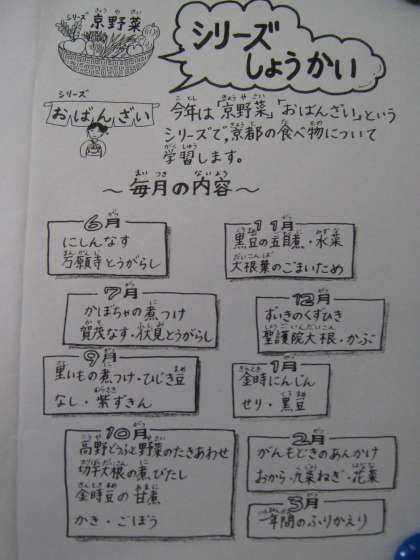 シリーズ 京野菜
シリーズ
しょうかい
シリーズ
おばんざい
今年は「京野菜」「おばんざい」という
シリーズで、京都の食べ物について
学習します。
～毎月の内容～
6月
にしんなす
万願寺とうがらし
7月
かぼちゃの煮つけ
賀茂なす・伏見とうがらし
9月
里いもの煮つけ・ひじき豆
なし・紫ずきん
10月
高野どうふと野菜のたきあわせ
切干大根の煮びたし
金時豆の甘煮
かき・ごぼう
11月
黒豆の五目煮・水菜
大根葉のごまいため
12月
ずいきのくずひき
聖護院大根・かぶ
1月
金時にんじん
せり・黒豆
2月
がんもどきのあんかけ
おから・九条ねぎ・花菜
3月
一年間のふりかえり